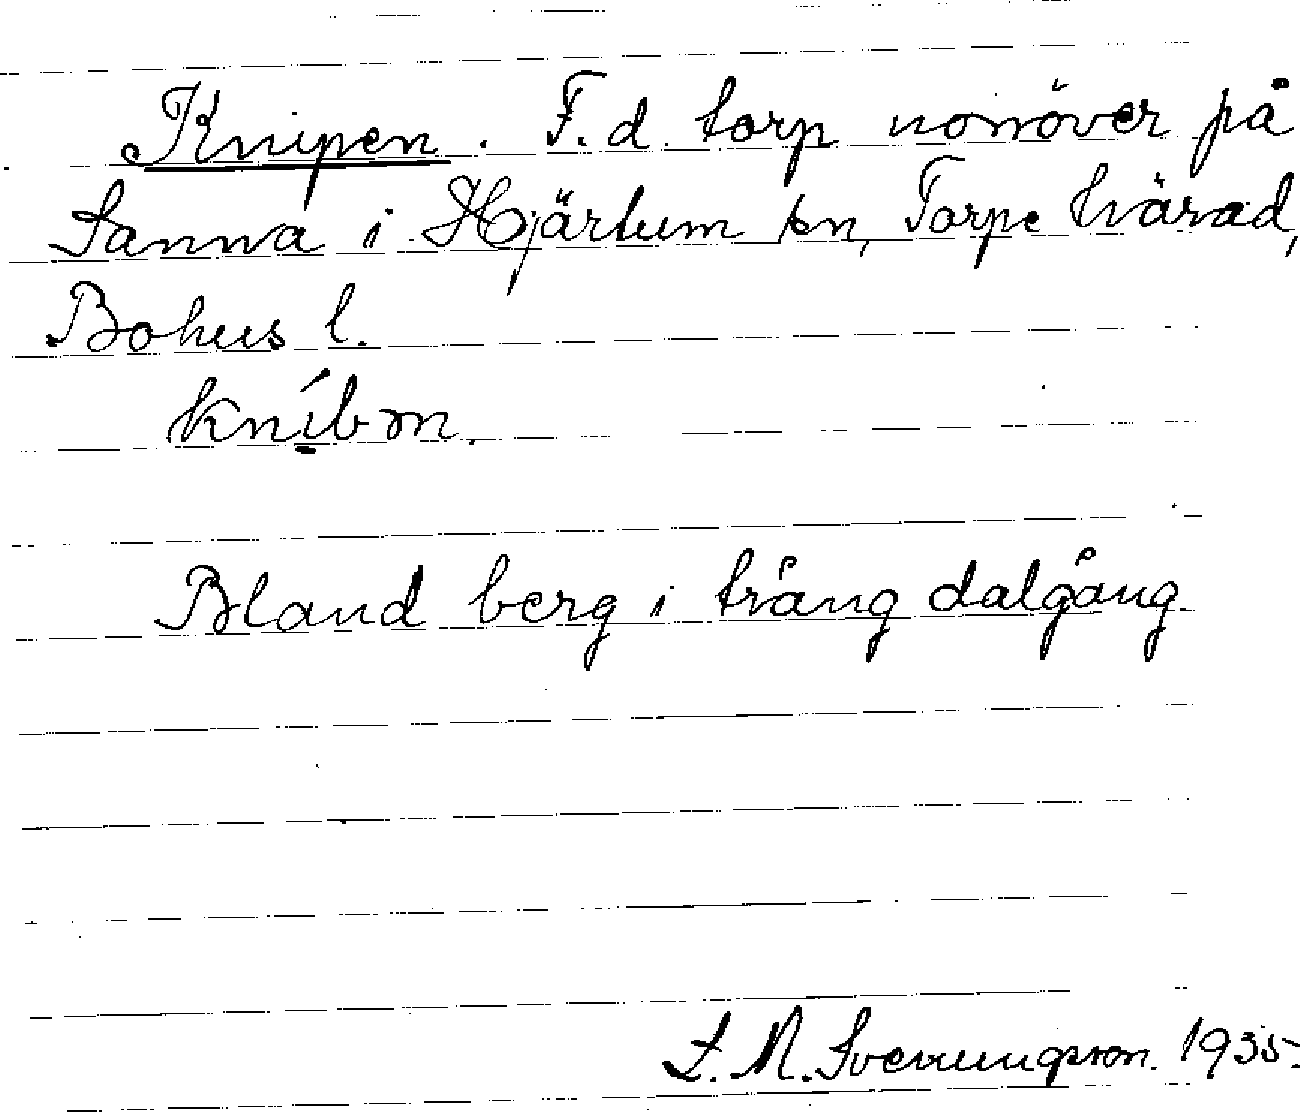 Knipen. F. d. torp norröver på
Sanna i Hjärtum sn, Torpe härad,
Bohus l.
kníbən.
Bland berg i trång dalgång.
L. M. Sverrungsson. 1935.